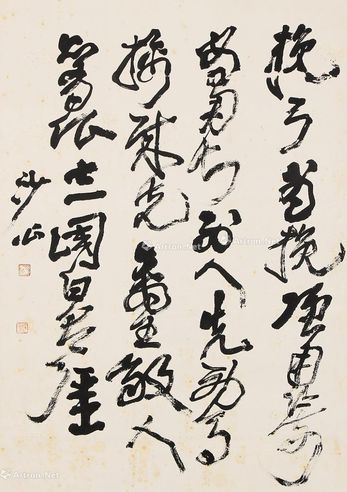 挽弓當挽強用箭
當用長射人先射馬
擒賊先擒王殺人
亦有限立國自有疆
Artron.Net